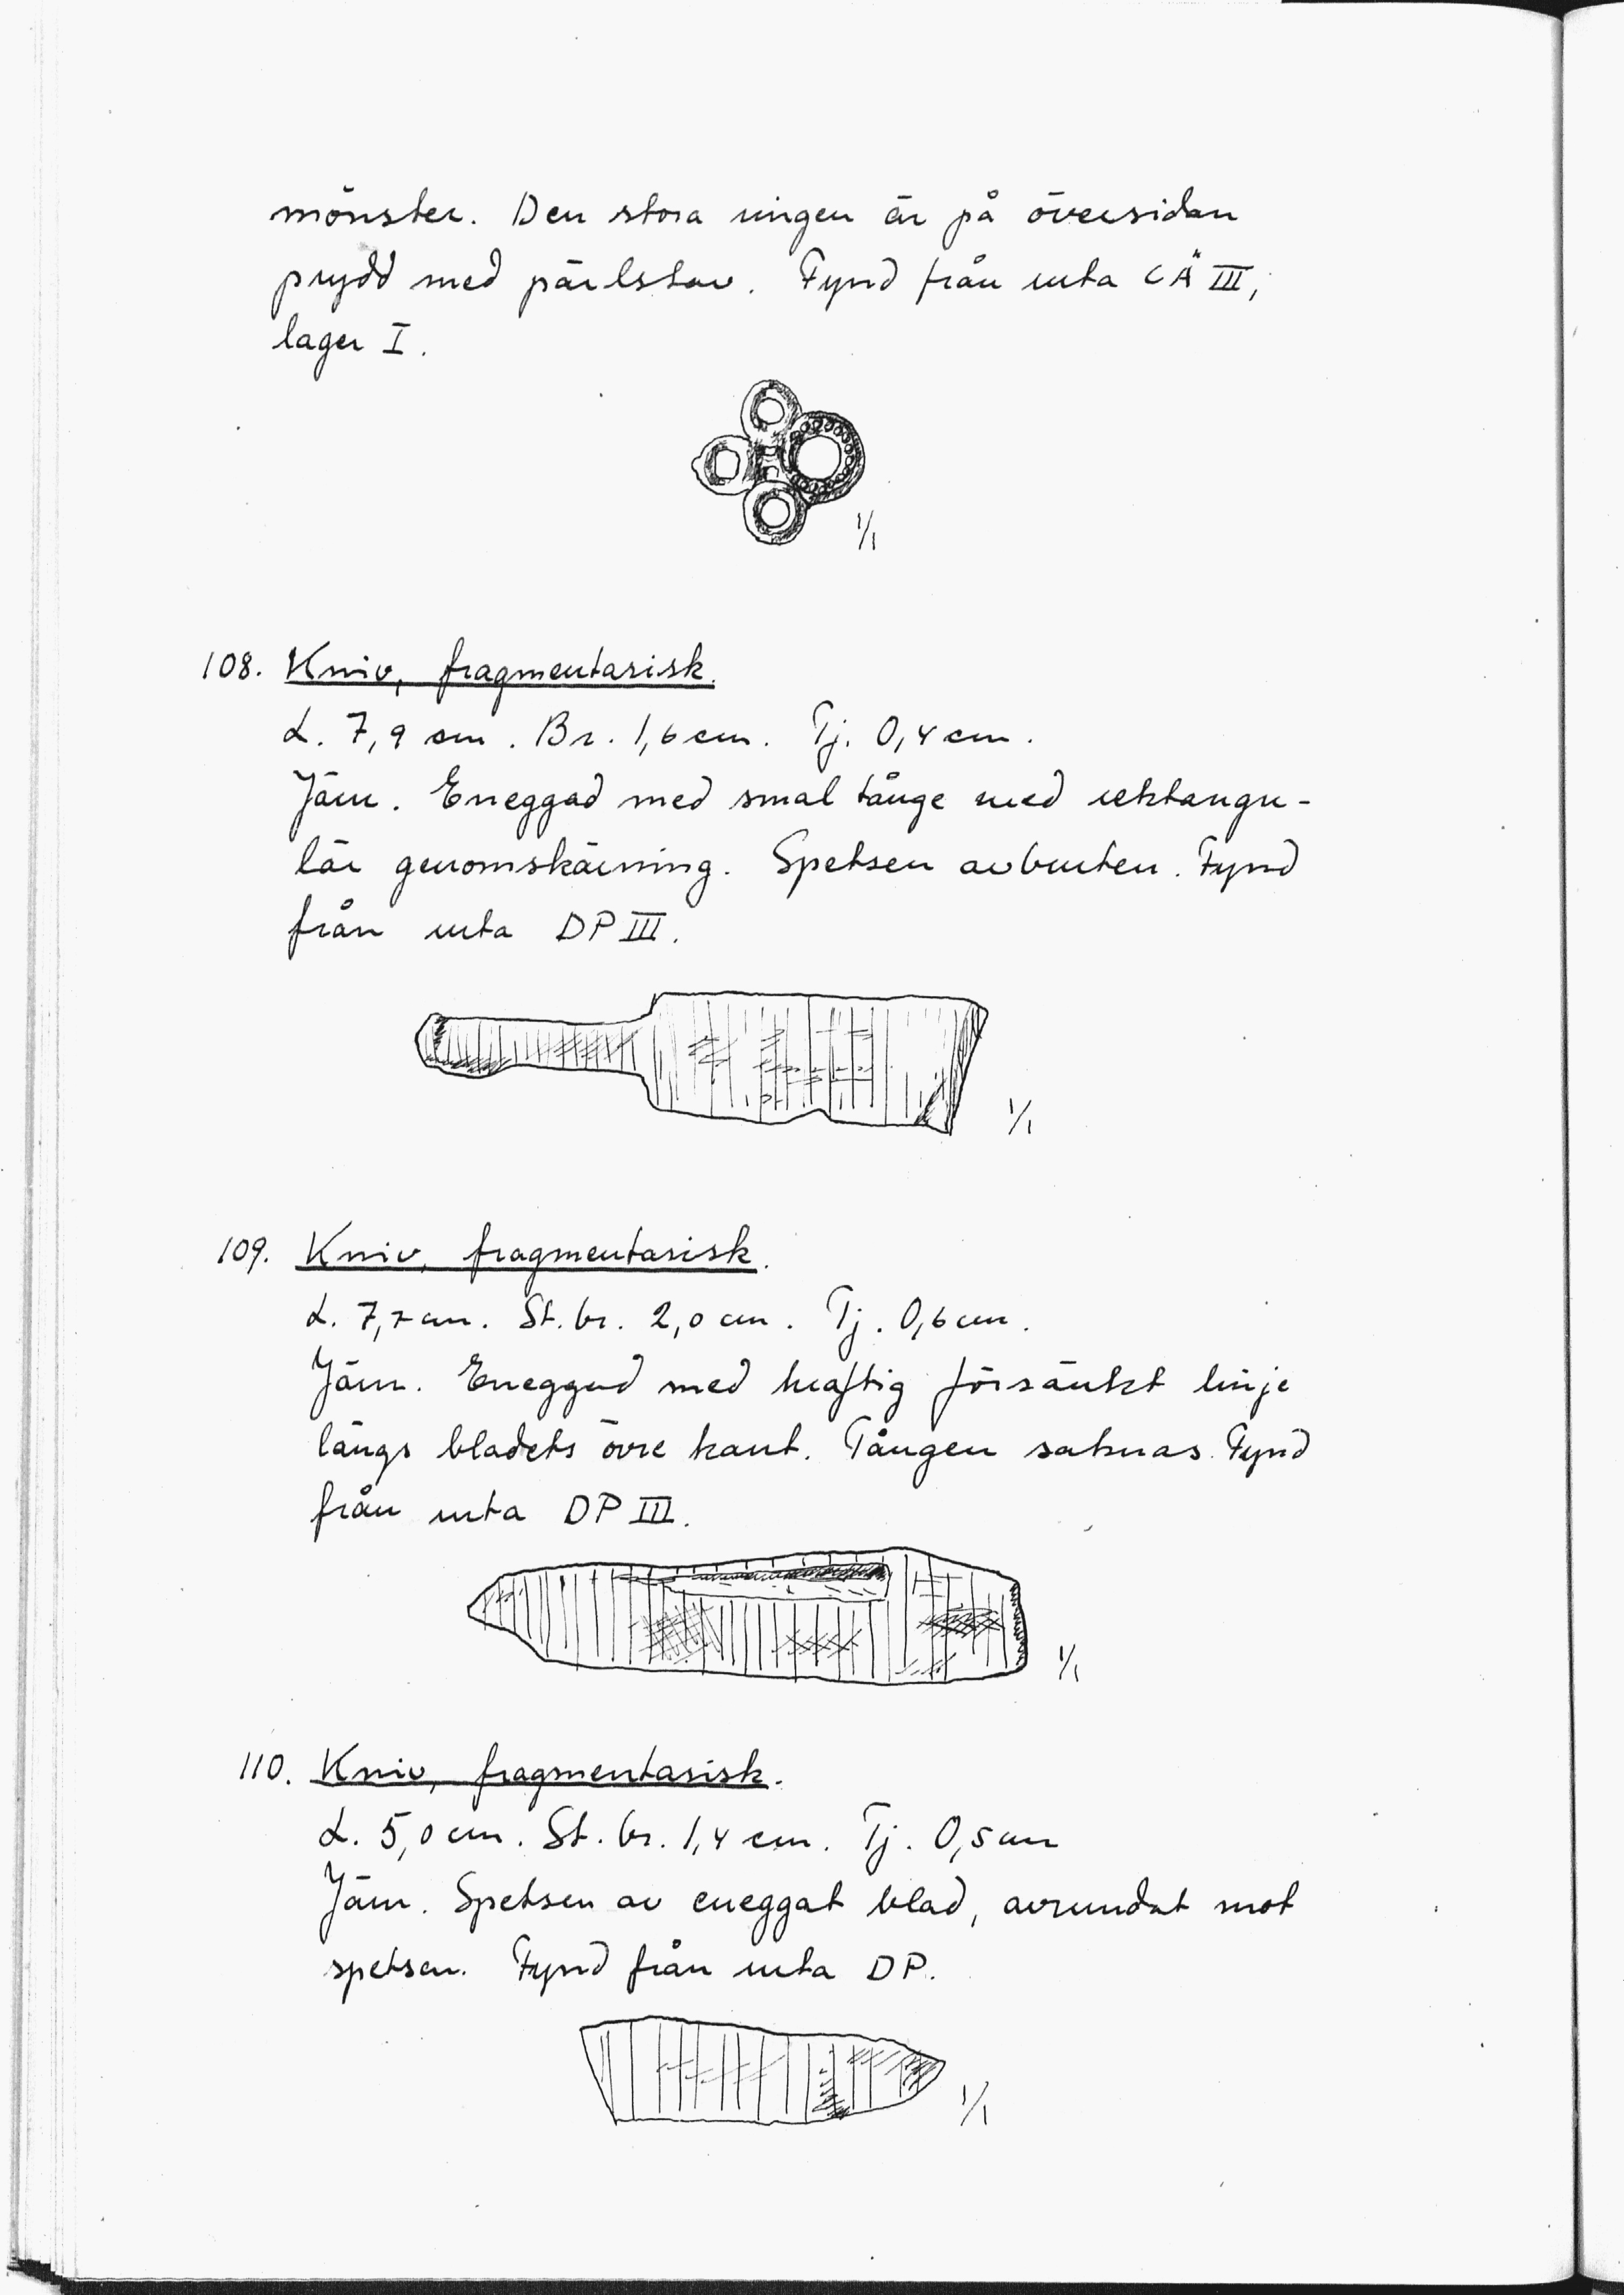 mönster. Den stora ringen är på översidan
prydd med pärlstav. Fynd från ruta CÄ III,
lager I.
1/1
108. Kniv, fragmentarisk.
L. 7,9 cm. Br. 1,6 cm. Tj. 0,4 cm.
Järn. Eneggad med smal tånge med rektangu-
lär genomskärning. Spetsen avbruten. Fynd
från ruta DP III.
1/1
109. Kniv, fragmentarisk.
L. 7,7 cm. St. br. 2,0 cm. Tj. 0,6 cm.
Järn. Eneggad med kraftig försänkt linje
längs bladets övre kant. Tången saknas. Fynd
från ruta DP III.
1/1
110. Kniv, fragmentarisk.
L. 5,0 cm. St. br. 1,4 cm. Tj. 0,5 cm
Järn. Spetsen av eneggat blad, avrundat mot
spetsen. Fynd från ruta DP.
1/1